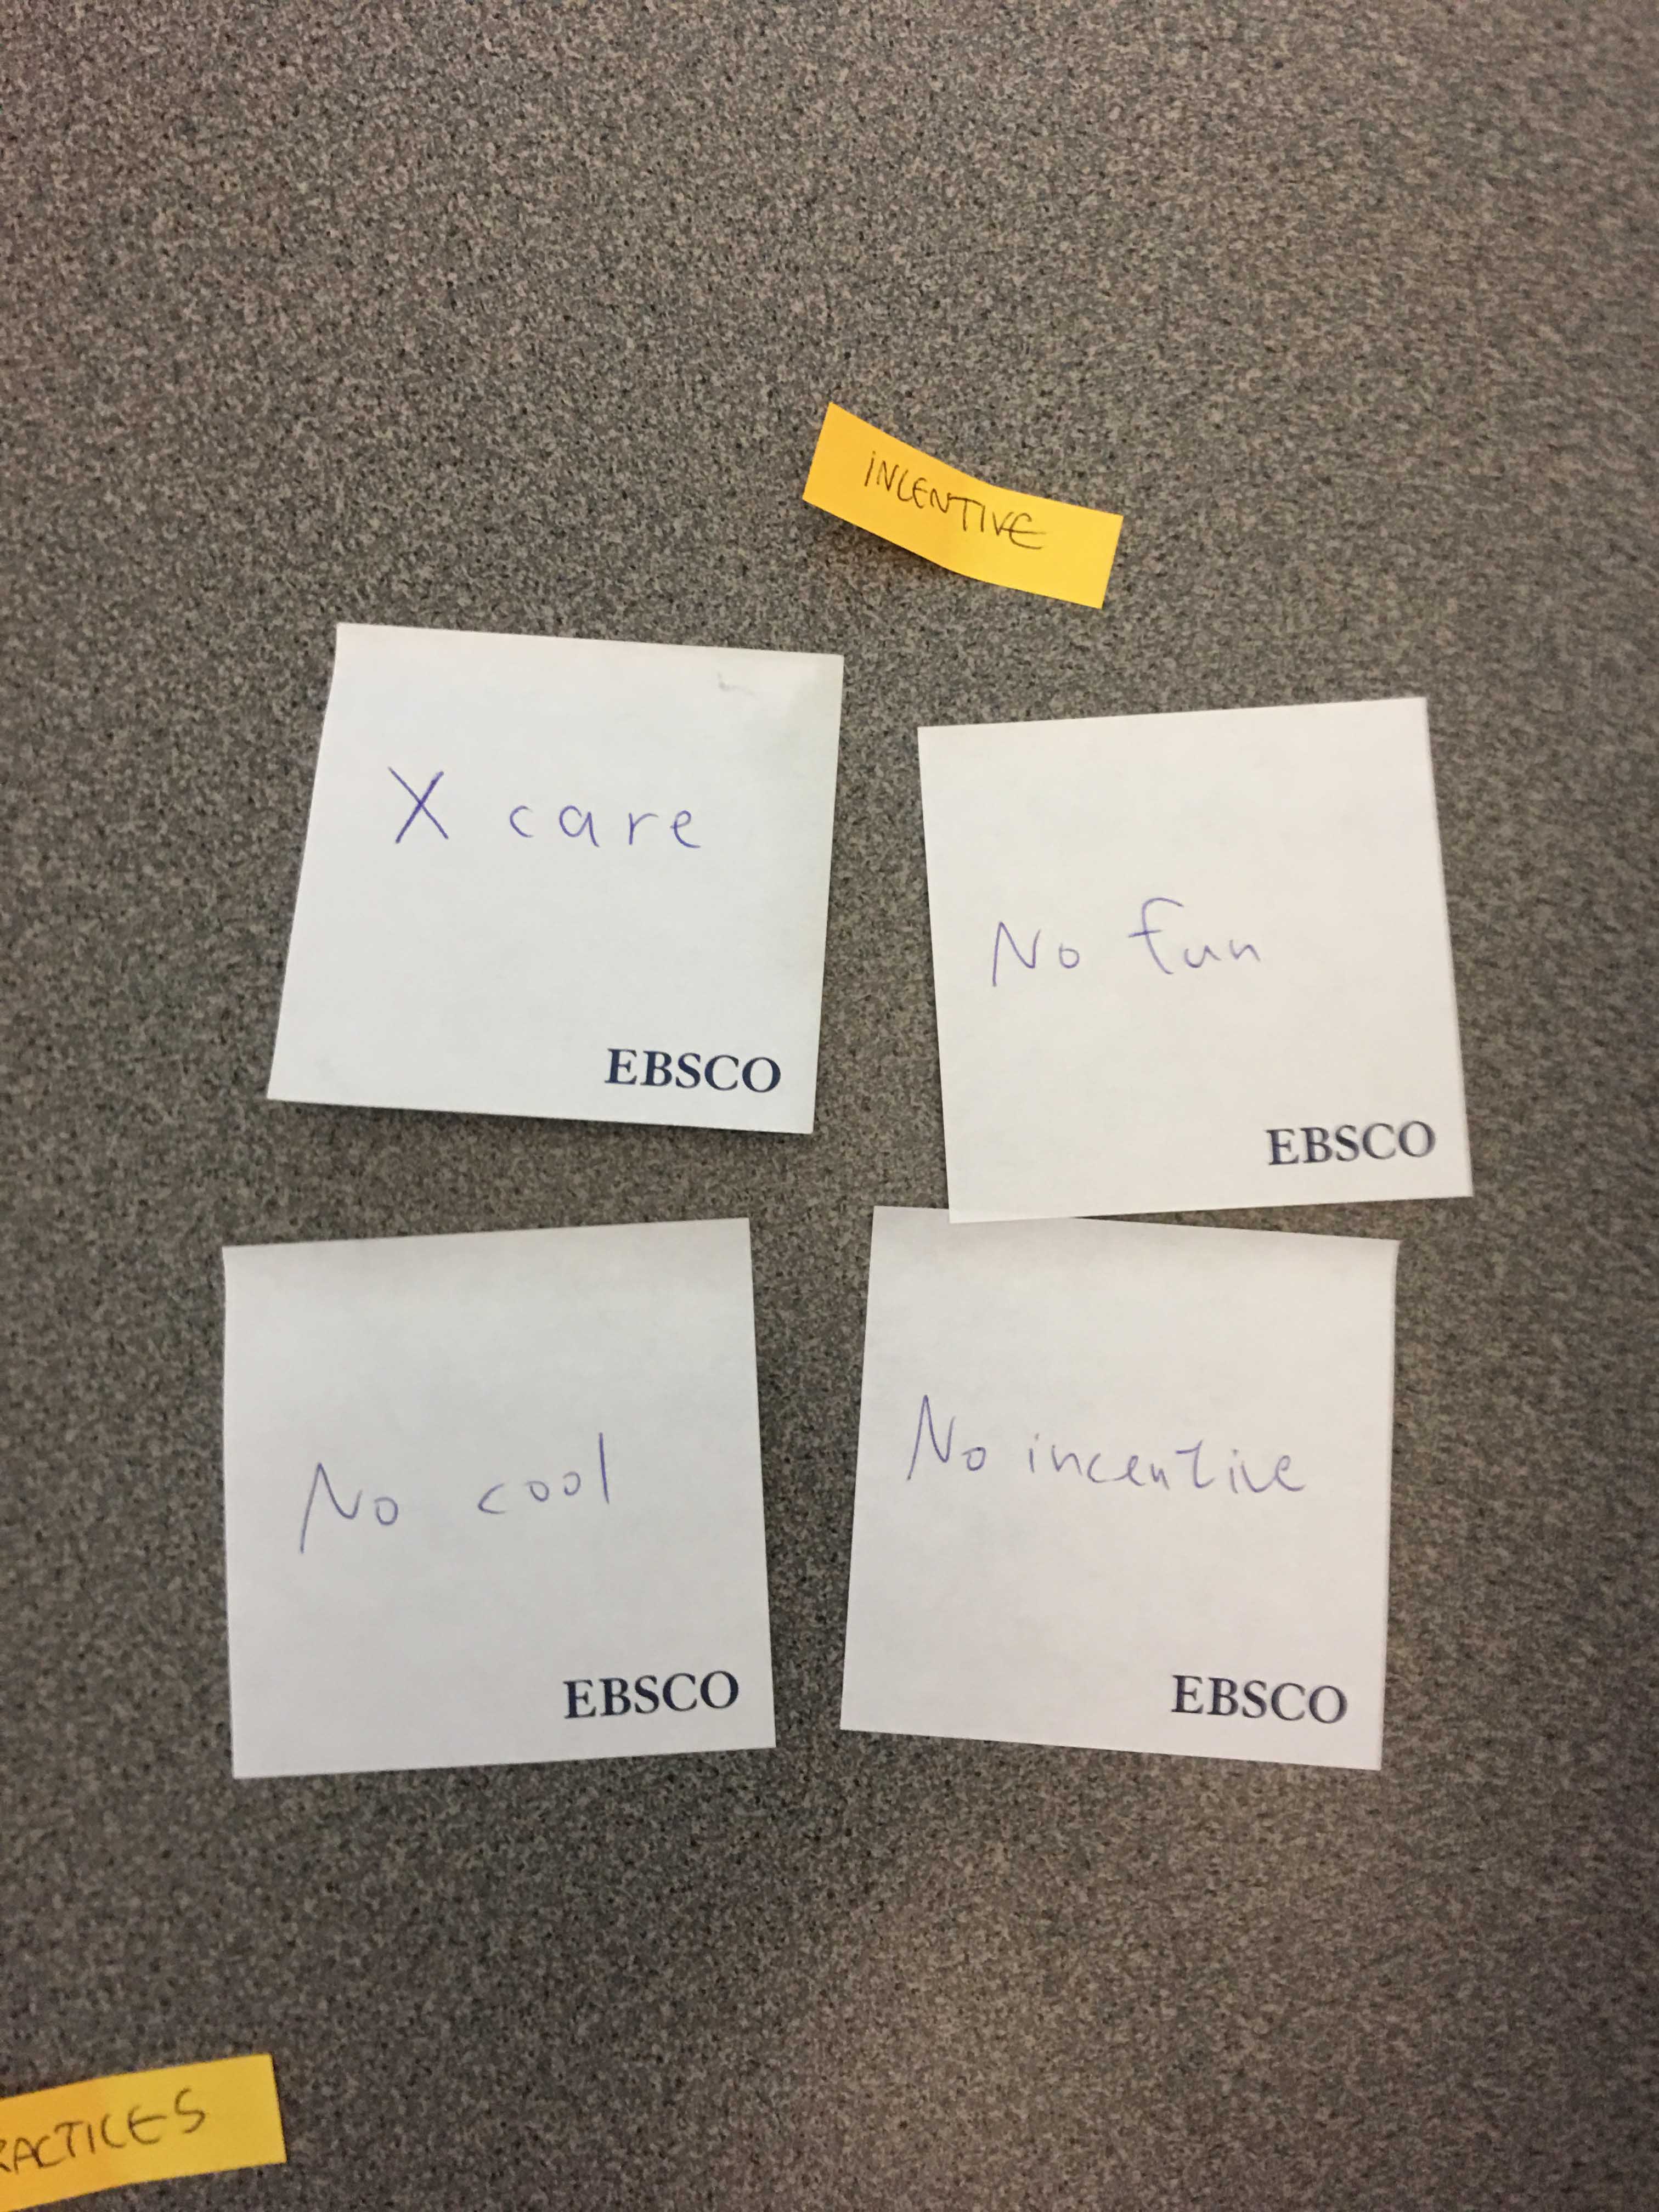 INCENTIVE
X care
EBSCO
No fun
EBSCO
No cool
EBSCO
No incentive
EBSCO
RACTICES